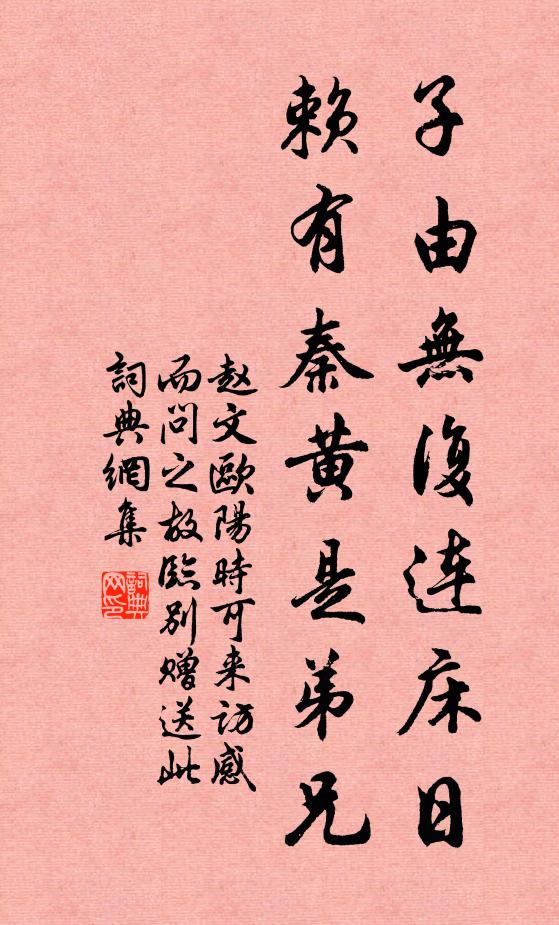 子由無復连床日
赖有秦黄是弟兄
赵文歐陽時可来访感
而问之故临别赠送此
詞典網集
詞典网印